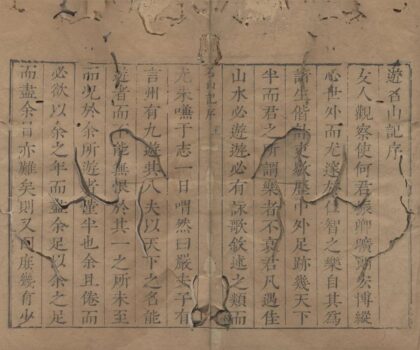 遊名山記序
友人觀察使何君振卿曠朗宏博縱
心世外而尤邃仁智之樂自其為
諸生偕計吏歇中外足跡幾天下
半而君之所謂樂者不衰君凡遇佳
山水必遊遊必有詠歌敘述之類而
名山記序
尤未嗛于志一日喟然曰嚴夫子有
言州有九遊其八夫以天下之名能
遊者而不能無憾於其一之所未至
而况於余所遊者僅半也余且倦而
必欲以余之年而盡余足以余之足
而盡余目亦難矣則又庶幾有少